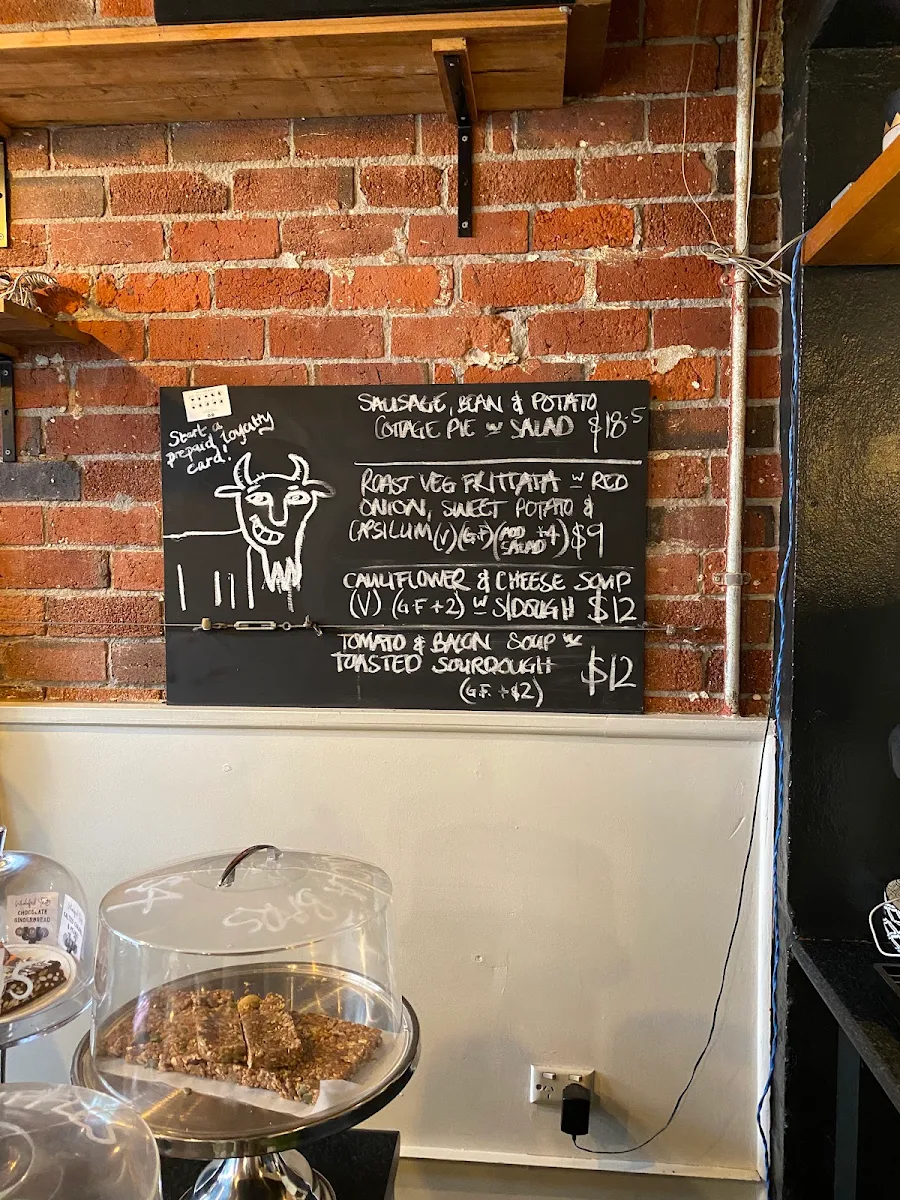 Start a
prepaid loyalty
card!
SAUSAGE, BEAN & POTATO
COTTAGE PIE w SALAD $18.5
ROAST VEG FRITTATA w RED
ONION, SWEET POTATO &
CAPSILUM (V) (G.F) (ADD SALAD +4) $9
CAULIFLOWER & CHEESE SOUP
(V) (G.F +2) w S/DOUGH $12
TOMATO & BACON SOUP w
TOASTED SOURDOUGH $12
(G.F. +$2)
CHOCOLATE
GINGERBREAD